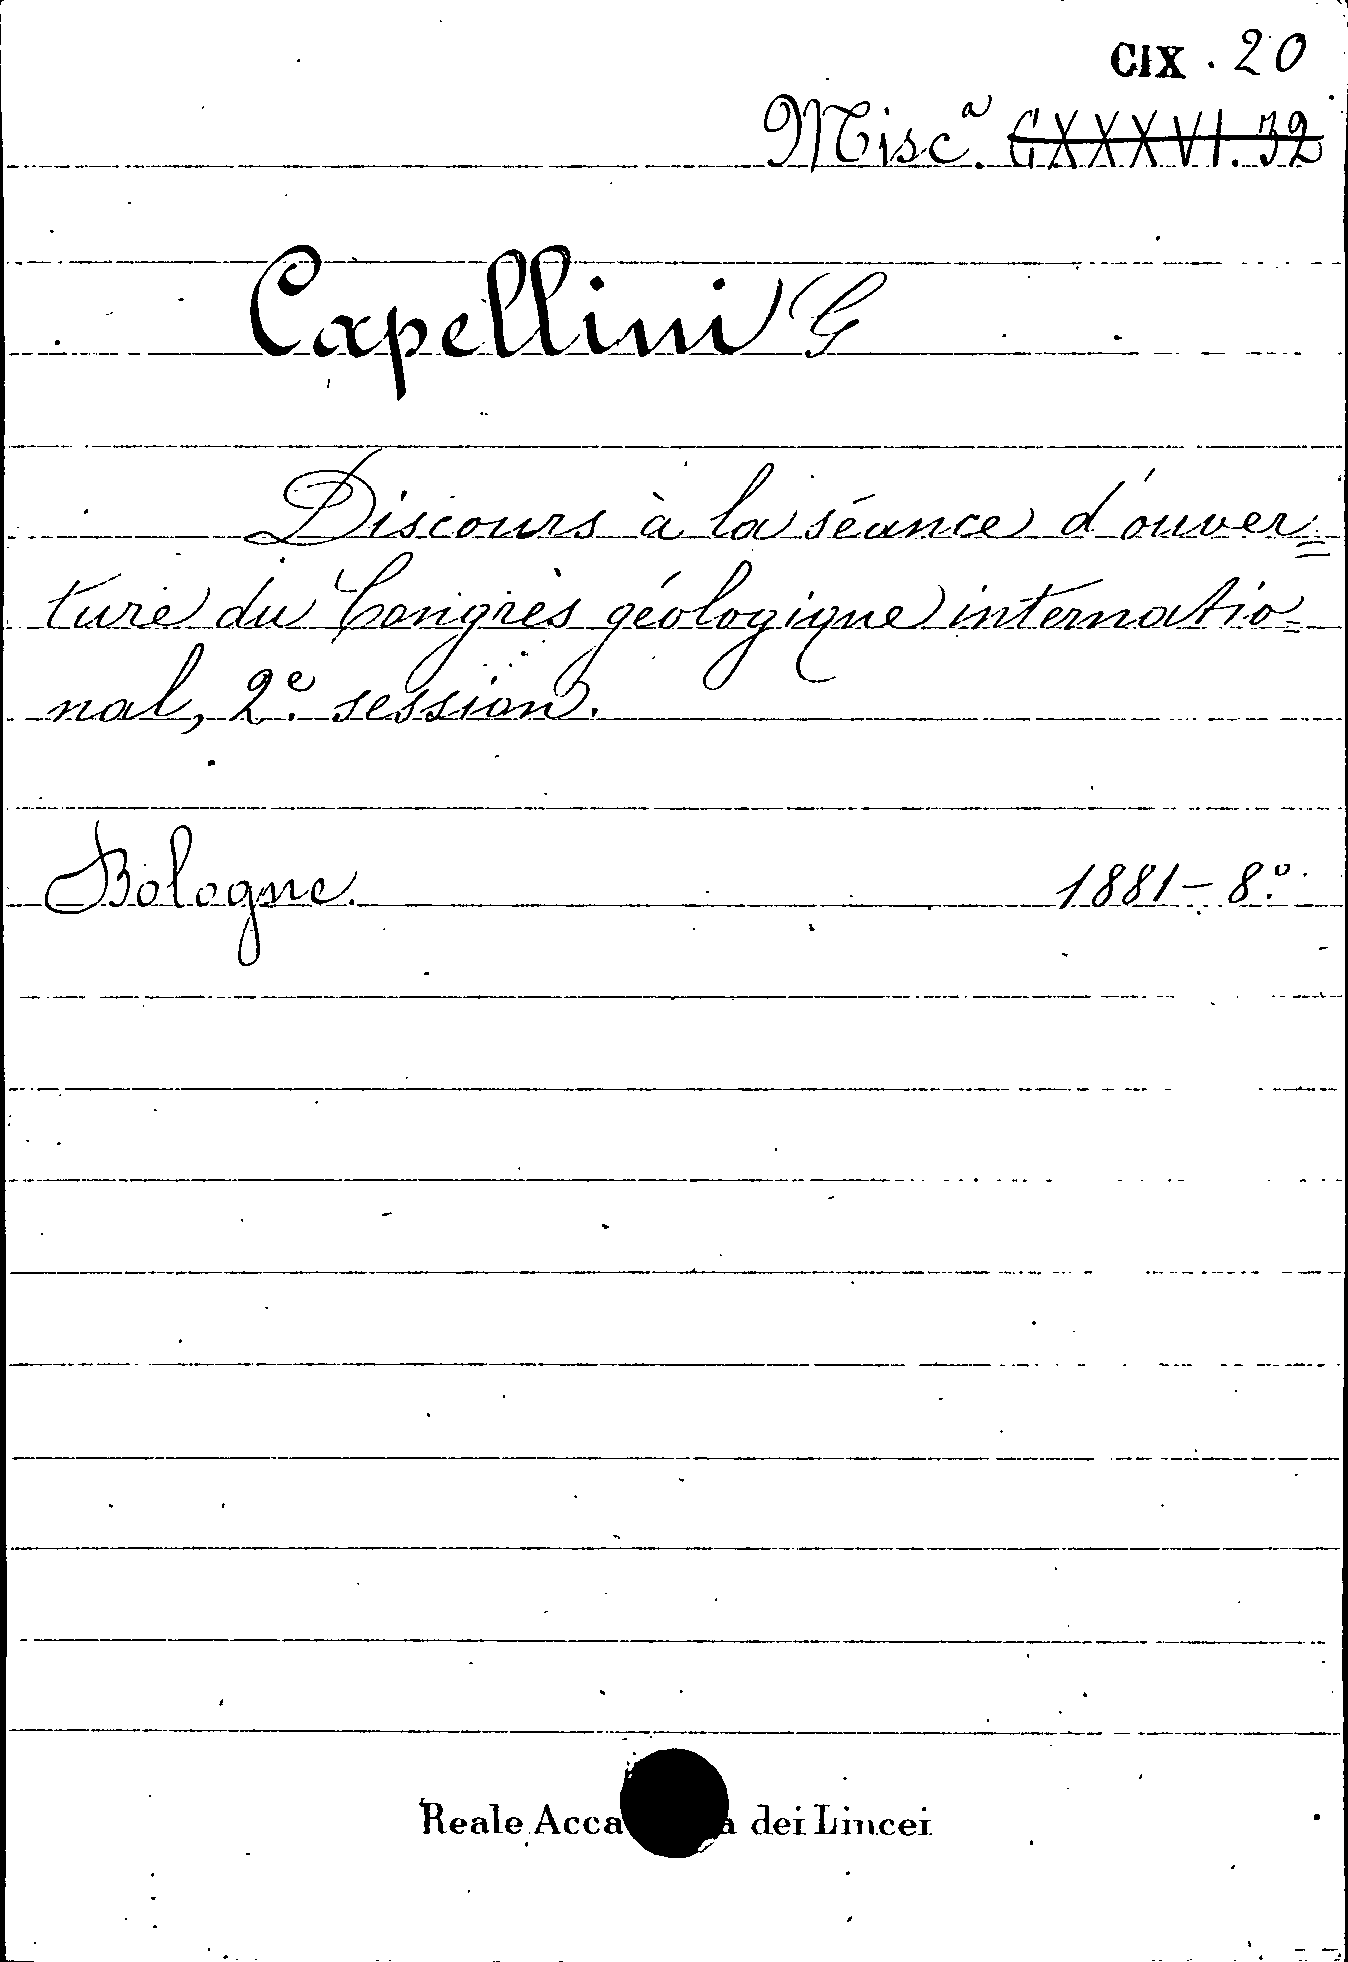 CIX. 20
Misc.ª CXXXVI. 32
Capellini G
Discours à la séance d'ouver=
ture du Congrès géologique internatio=
nal, 2.e session.
Bologne. 1881 – 8.º
Reale Acca a dei Lincei